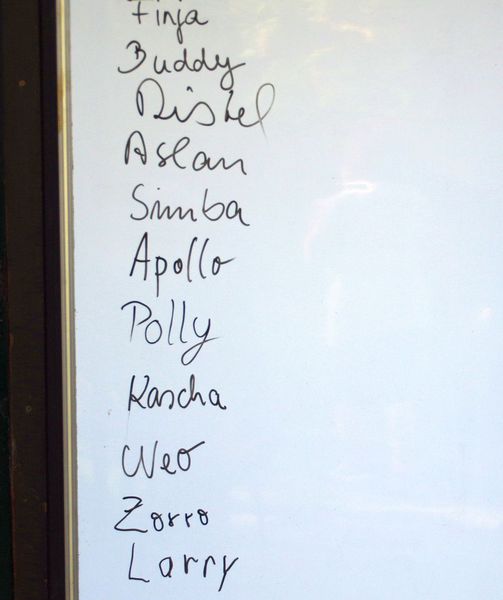 Finja
Buddy
Distel
Aslan
Simba
Apollo
Polly
Kascha
Weo
Zorro
Larry